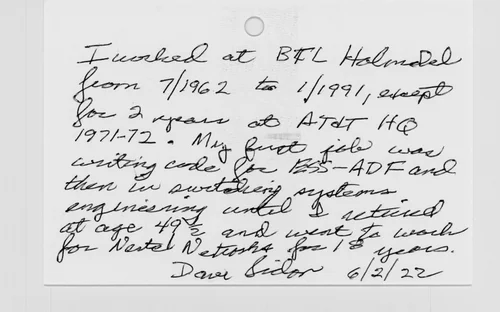 I worked at BTL Holmdel
from 7/1962 to 1/1991, except
for 2 years at AT&T HQ
1971-72. My first job was
writing code for ESS-ADF and
then in switching systems
engineering until I retired
at age 49½ and went to work
for Nortel Networks for 1 years.
Dave 6/2/22